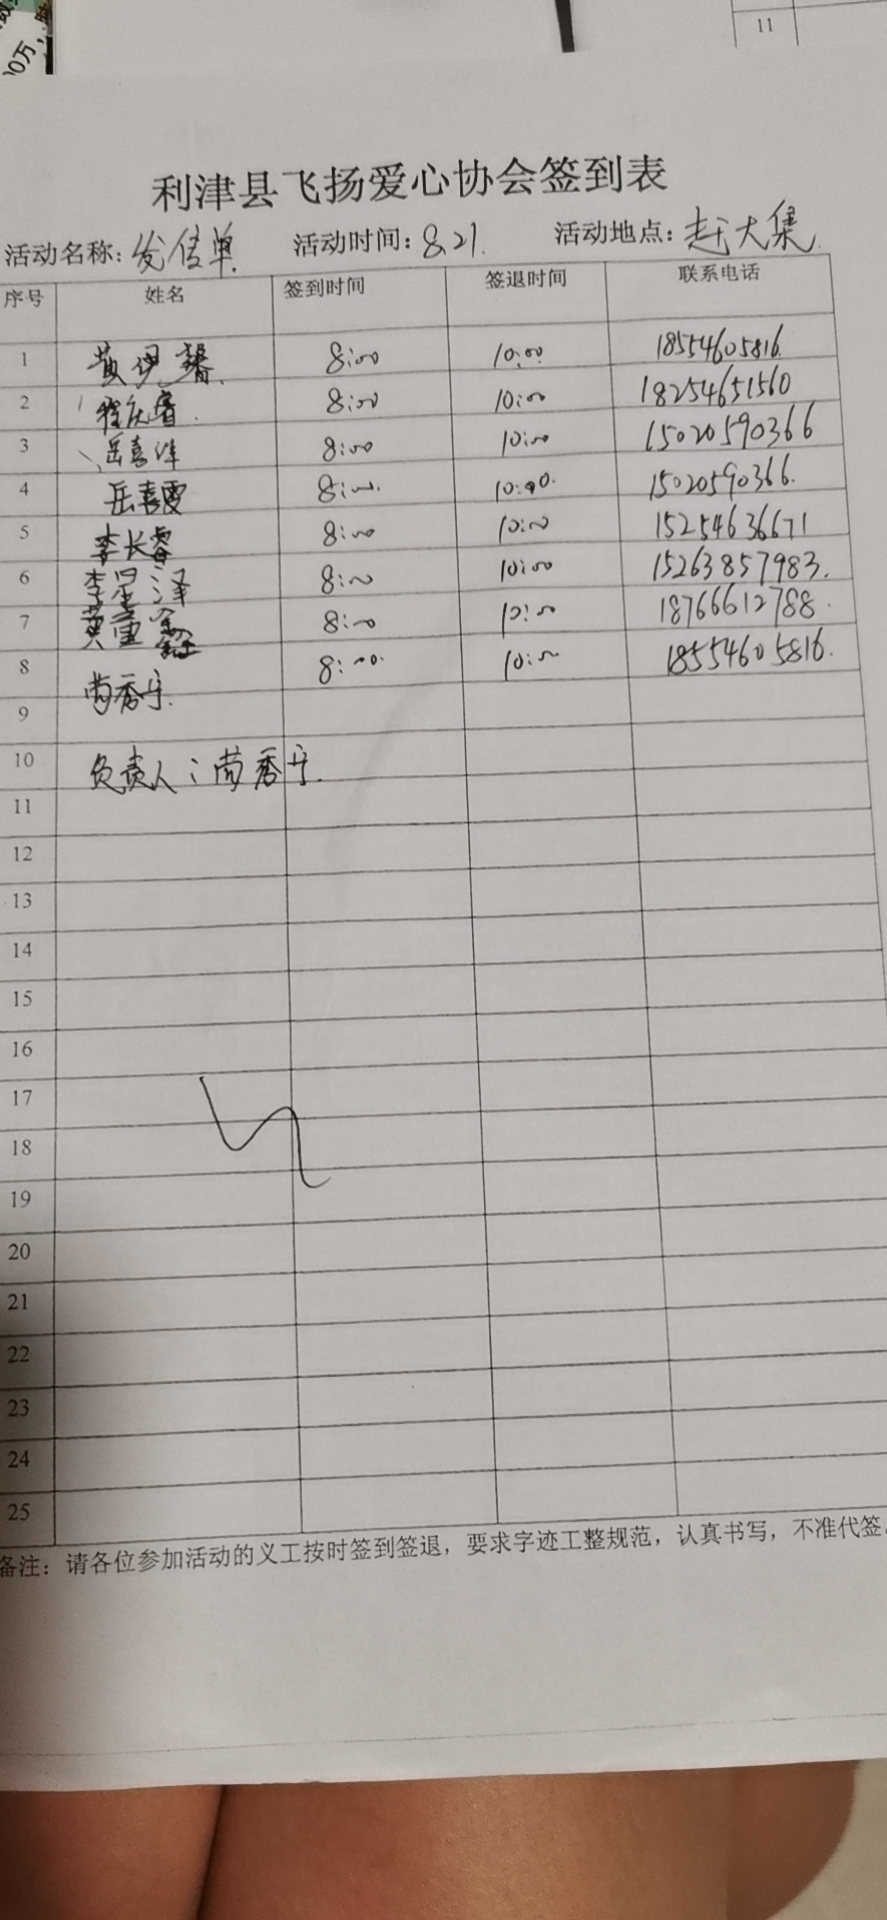 00万,
11
利津县飞扬爱心协会签到表
活动名称: 发传单 活动时间: 8.21. 活动地点: 赶大集
序号 姓名 签到时间 签退时间 联系电话
1 黄伊馨. 8:00 10:00 18554605816.
2 程庆睿. 8:00 10:00 18254651560
3 岳喜洋 8:00 10:00 15020590366
4 岳喜雯 8:00. 10:00. 15020590366.
5 李长睿 8:00 10:00 15254636671
6 李星泽 8:00 10:00 15263857983.
7 黄童鑫 8:00 10:00 18766612788.
8 尚香宁. 8:00. 10:00 18554605816.
9
10 负责人:尚香宁.
11
12
13
14
15
16
17
18
19
20
21
22
23
24
25
备注：请各位参加活动的义工按时签到签退，要求字迹工整规范，认真书写，不准代签。